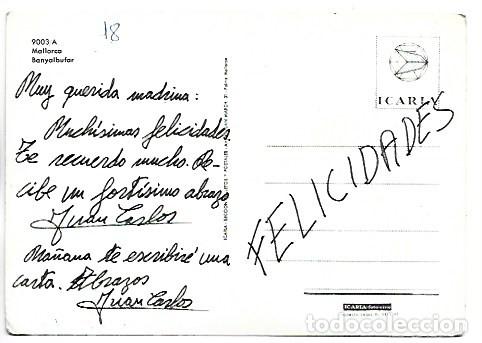 18
9003 A
Mallorca
Banyalbufar
Muy querida madrina:
Muchísimas felicidades.
Te recuerdo mucho. Re-
cibe un fortísimo abrazo
Juan Carlos
Mañana te escribiré una
carta. Abrazos
Juan Carlos
ICARIA
FELICIDADES
ICARIA
todocoleccion.net